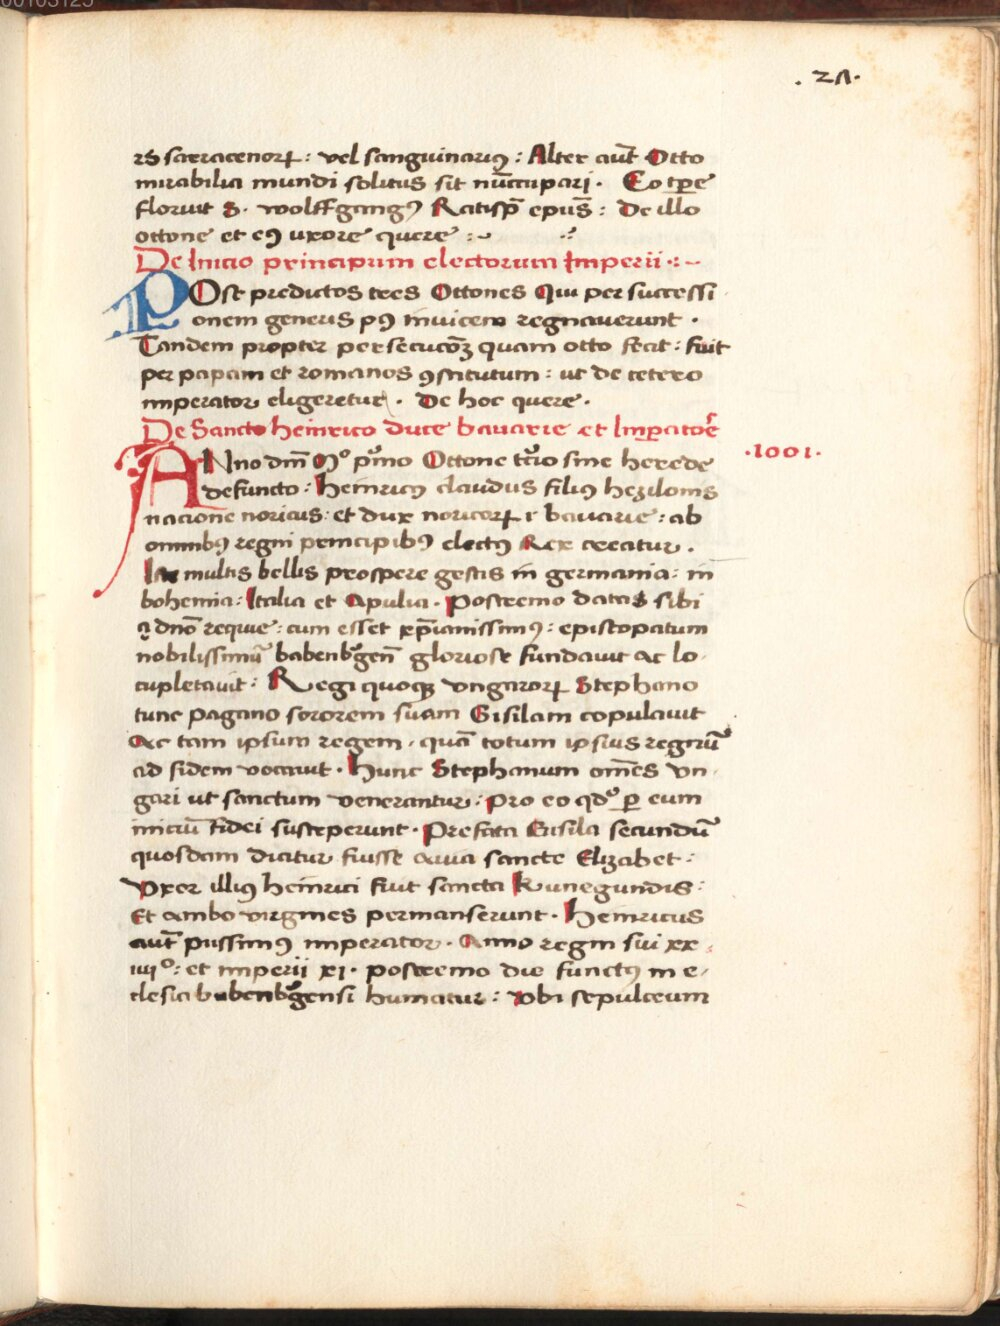 00103125
.27.
rs sarracenorꝝ : vel sanguinariꝰ : Alter aut̄ Otto
mirabilia mundi solitus sit nūccupari . Eo tꝑe
floruit S. wolffgangꝰ Ratisp̄ ep̄us : De illo
ottone et eꝰ uxore quere :~
De Inicio principum electorum Imperii .:~
POst predictos tres Ottones Qui per successi
onem generis pꝰ invicem regnaverunt .
Tandem propter persecucōꝫ quam otto fecit : fuit
per papam et romanos ꝯstitutum : ut de cetero
imperator eligeretur . De hoc quere .
De Sancto heinrico duce bavarie et Imꝑatore
.1001.
ANno dn̄i Mº pͥmo Ottone tercio sine herede
defuncto : heinricꝰ claudus filiꝰ hezilonis
nacione noricus : et dux noricorꝝ i bavarie : ab
omnibꝰ regni principibꝰ electꝰ Rex creatur .
multis bellis prospere gestis in germania : in
bohemia : Italia et Apulia . Postremo data sibi
a dn̄o requie : cum esset xp̄ianissimꝰ : episcopatum
nobilissimū babenbͤgen̄ gloriose fundavit ac lo
cupletavit : Regi quoqꝫ ungarorꝝ Stephano
tunc pagano sororem suam Gisilam copulavit
Ac tam ipsum regem . quā totum ipsius regnū
ad fidem vocavit . Hunc Stephanum om̄es un
gari ut sanctum venerantur : pro eo qdº ꝑ eum
iniciū fidei susceperunt . Prefata Gisila secundū
quosdam dicitur fuisse avia sancte Elizabet :
Uxor illiꝰ heinrici fuit sancta Kunegundis :
Et ambo virgines permanserunt . Heinricus
aut̄ piissimꝰ imperator . Anno regni sui xx
iiiiº : et imperii xi . postremo die functꝰ in e
clesia babenbͤgensi humatur : ubi sepulcrum